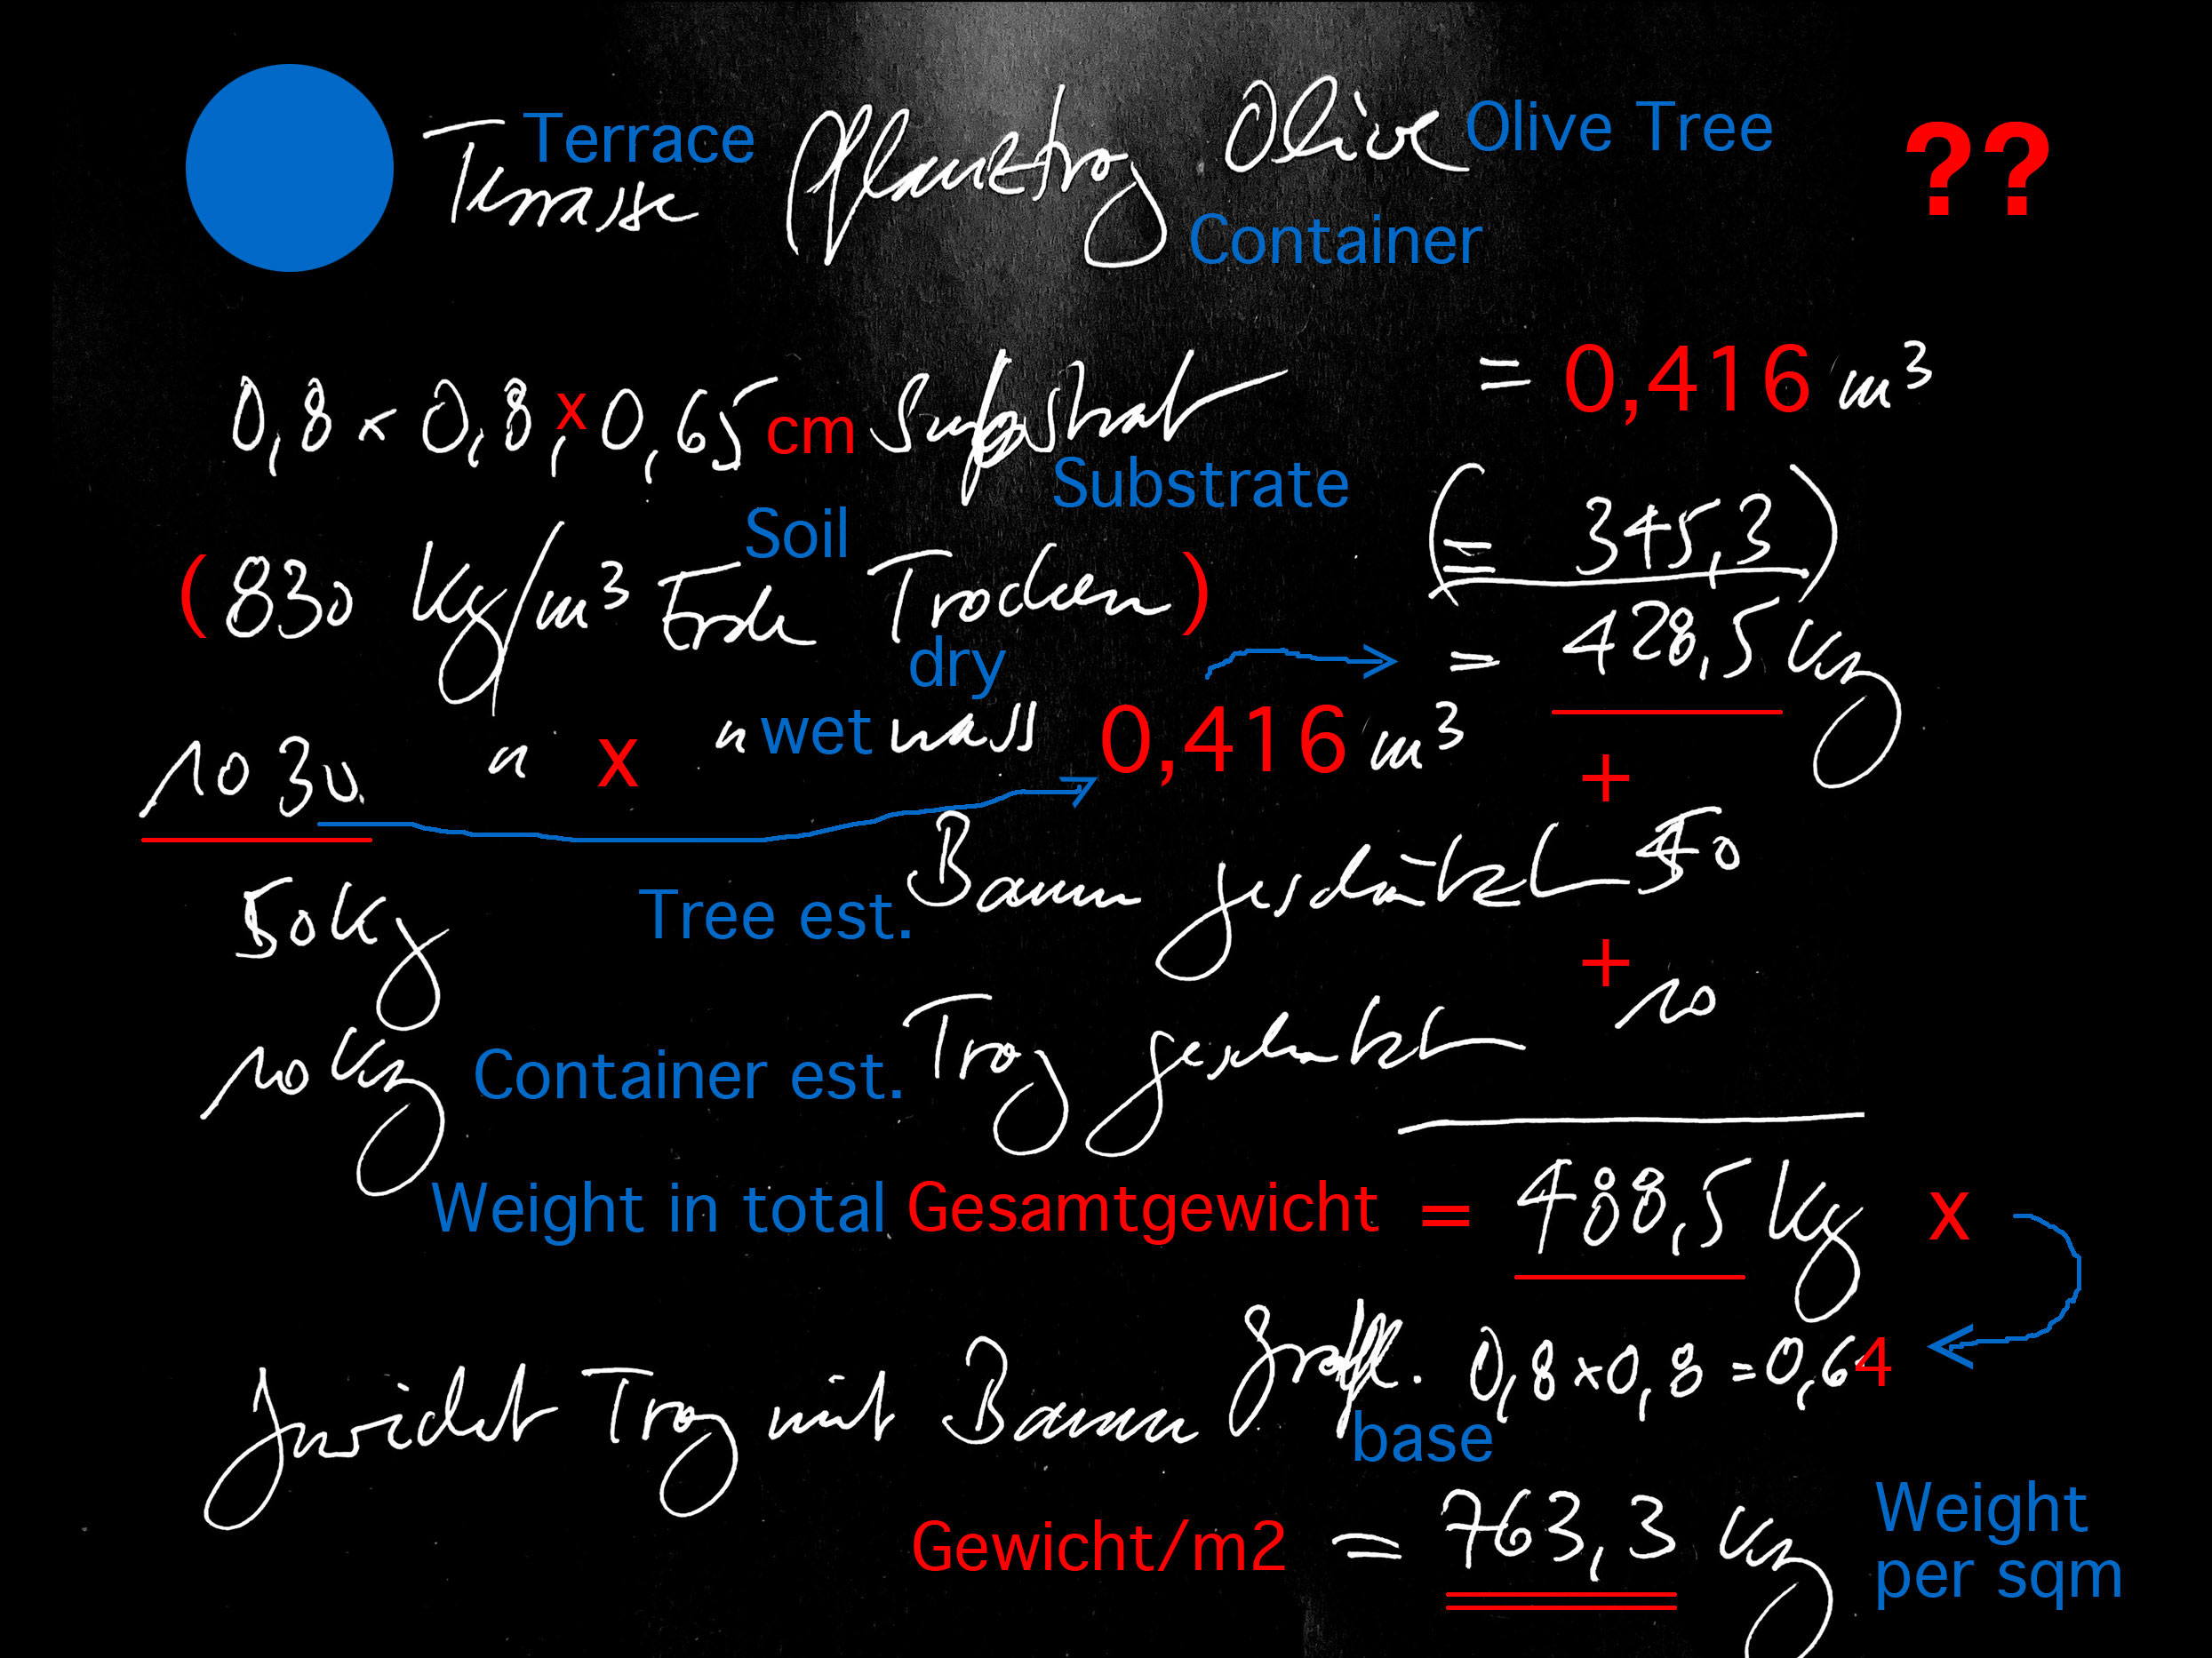 Terrasse Terrace Pflanztrog Container Olive Olive Tree ??
0,8 x 0,8, x 0,65 cm Substrat Substrate = 0,416 m³
(830 kg/m³ Erde Soil Trocken dry) (= 345,3)
= 428,5 kg
1030. " x " wet nass 0,416 m³
+
50kg Tree est. Baum geschätzt 50
+
10 kg Container est. Trog geschätzt 10
Weight in total Gesamtgewicht = 488,5 kg x
Gewicht Trog mit Baum base 0,8 x 0,8 = 0,64
Gewicht/m2 = 763,3 kg Weight
per sqm